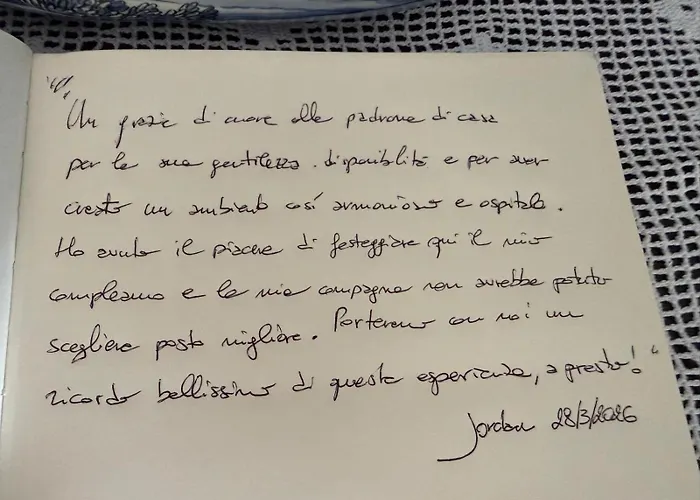 "Un grazie di cuore alla padrona di casa
per la sua gentilezza, disponibilità e per aver
creato un ambiente così armonioso e ospitale.
Ho avuto il piacere di festeggiare qui il mio
compleanno e la mia compagna non avrebbe potuto
scegliere posto migliore. Porteremo con noi un
ricordo bellissimo di questa esperienza, a presto!"
Jordan 28/3/2026